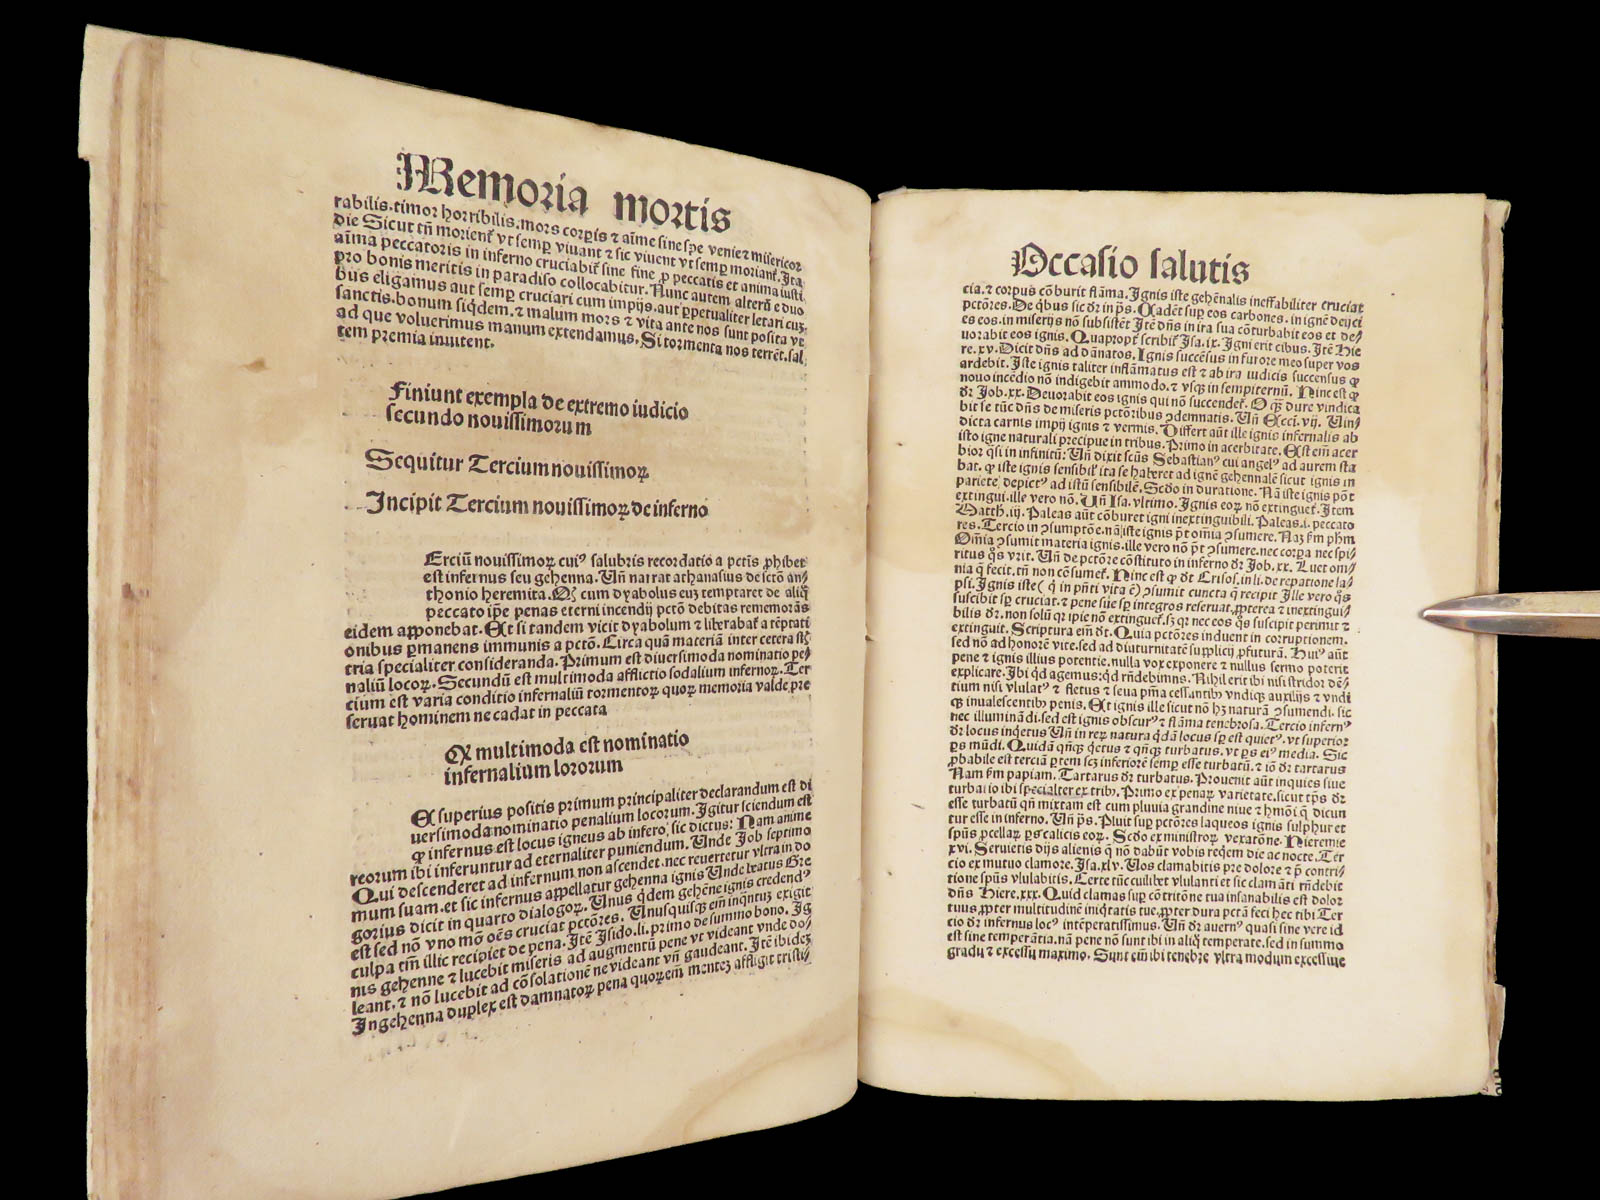 Memoria mortis
rabilis.timor horribilis.mors corpis ⁊ aĩme sine spe veniet misericor
die Sicut tñ morient᷑ vt semp viuant ⁊ sic viuent vt semp moriant᷑. Ita
aĩma peccatoris in inferno cruciabit᷑ sine fine ꝓ peccatis et anima iusti
pro bonis meritis in paradiso collocabitur. Nunc autem alterũ e duo
bus eligamus aut semp cruciari cum impijs.aut ꝑpetualiter letari cuȝ
sanctis.bonum siqdem.⁊ malum mors ⁊ vita ante nos sunt posita vt
ad que voluerimus manum extendamus. Si tormenta nos terrẽt.sal
tem premia inuitent.
Finiunt exempla de extremo iudicio
secundo nouissimorum
Sequitur Tercium nouissimoꝝ
Incipit Tercium nouissimoꝝ de inferno
Erciũ nouissimoꝝ cui⁹ salubris recordatio a pctĩs ꝓhibet
est infernus seu gehenna. Uñ narrat athanasius de sctõ an⸗
thonio heremita. cum dyabolus euȝ temptaret de aliq̃
peccato ip̃e penas eterni incendij pctõ debitas rememorãs
eidem apponebat. Et si tandem vicit dyabolum ⁊ liberabat᷑ a tẽptati
onibus ꝑmanens immunis a pctõ. Circa quã materiã inter cetera
tria specialiter consideranda. Primum est diuersimoda nominatio pe⸗
naliũ locoꝝ. Secundũ est multimoda afflictio sodalium infernoꝝ. Ter
cium est varia conditio infernaliũ tormentoꝝ quoꝝ memoria valde pre
seruat hominem ne cadat in peccata
Q multimoda est nominatio
infernalium lororum
EX superius positis primum principaliter declarandum est di
uersimoda nominatio penalium locorum. Igitur sciendum est
ꝙ infernus est locus igneus ab infero; sic dictus: Nam anime
reorum ibi inferuntur ad eternaliter puniendum. Unde Job septimo
Qui descenderet ad infernum non ascendet.nec reuertetur vltra in do
mum suam.et sic infernus appellatur gehenna ignis Unde beatus Gre
gorius dicit in quarto dialogoꝝ. Unus qdem gehẽne ignis credend⁹
est sed nõ vno mõ oẽs cruciat pctõres. Unusquisqȝ em̃ inqntuȝ exigit
culpa tm̃ illic recipiet de pena. Itẽ Isido.li.primo de summo bono. Ig
nis gehenne ⁊ lucebit miseris ad augmentũ pene vt videant vnde do⸗
leant. ⁊ nõ lucebit ad cõsolationẽ ne videant vñ gaudeant. Itẽ ibideȝ
In gehenna duplex est damnatoꝝ pena quorem̃ menteȝ affligit tristi⸗
Occasio salutis
cia.⁊ corpus cõburit flãma. Ignis iste gehẽnalis ineffabiliter cruciat
pctõres. De qbus sic dr̃ in ps̃. Cadẽt suꝑ eos carbones. in ignẽ deijci
es eos.in miserijs nõ subsistẽt Itẽ dñs in ira sua cõturbabit eos et de⸗
uorabit eos ignis. Quapropt᷑ scribit᷑ Isa.ix. Igni erit cibus. Itẽ Hie
re.xv. Dicit dñs ad dãnatos. Ignis succẽsus in furore meo super vos
ardebit. Iste ignis taliter inflãmatus est ⁊ ab ira iudicis succensus ꝙ
nouo incẽdio nõ indigebit ammodo.⁊ vsqȝ in sempiternũ. Hinc est ꝙ
dr̃ Job.xx. Deuorabit eos ignis qui nõ succendet᷑. O ꝙ̃ dure vindica
bit se tũc dñs de miseris pctõribus ↄdemnatis. Uñ Ecci.vij. Uin⸗
dicta carnis impij ignis ⁊ vermis. Differt aũt ille ignis infernalis ab
isto igne naturali precipue in tribus. Primo in acerbitate. Est em̃ acer
bior qsi in infinitũ: Uñ dixit scũs Sebastian⁹ cui angel⁹ ad aurem sta
bat. ꝙ iste ignis sensibil᷑ ita se haberet ad ignẽ gehennalẽ sicut ignis in
pariete depict⁹ ad istũ sensibilẽ. Scdo in duratione. Nã iste ignis põt
extingui.ille vero nõ. Uñ Isa.vltimo. Ignis eoꝝ nõ extinguet᷑. Item
Matth.iij. Paleas aũt cõburet igni inextinguibili. Paleas.i.peccato
res. Tercio in ↄsumptõe.nã iste ignis pt̃ omĩa ↄsumere. Naȝ ẜm phm̃
Omĩa ↄsumit materia ignis.ille vero nõ pt̃ ↄsumere.nec corpa nec spi⸗
ritus q̃s vrit. Uñ de pctõre cõstituto in inferno dr̃ Job.xx. Luet om⸗
nia q̃ fecit.tñ non cõsumet᷑. Hinc est ꝙ dt̃ Crisos.in li.de repatione la⸗
psi. Ignis iste (q̃ in pñti vita ẽ) ↄsumit cuncta q̃ recipit Ille vero q̃s
suscibit sp̃ cruciat.⁊ pene sue sp̃ integros reseruat.ꝓpterea ⁊ inextingui⸗
bilis dr̃.non solũ qꝛ ipie nõ extinguet᷑.sȝ qꝛ nec eos q̃s suscipit perimit ⁊
extinguit. Scriptura em̃ dt̃. Quia pctõres induent in corruptionem.
sed nõ ad honorẽ vite.sed ad diuturnitatẽ supplicij ꝓfuturã. Hui⁹ aũt
pene ⁊ ignis illius potentie.nulla vox exponere ⁊ nullus sermo poterit
explicare. Ibi qd agemus:qd rñdebimus. Nihil erit ibi nisi stridor dẽ⸗
tium nisi vlulat⁹ ⁊ fletus ⁊ seua pm̃a cessantibȝ vndiqȝ auxilijs ⁊ vndi
qȝ inualescentibȝ penis. Et ignis ille sicut nõ hȝ naturã ↄsumendi. sic
nec illuminãdi.sed est ignis obscur⁹ ⁊ flãma tenebrosa. Tercio infern⁹
dr̃ locus inqetus Uñ in reꝝ natura qdã locus sp̃ est quiet⁹.vt superior
ps mũdi. Quidã qñqȝ qetus ⁊ qñqȝ turbatus.vt ps ei⁹ media. Sic
ꝓbabile est terciã ptem scȝ inferiorẽ semp esse turbatũ.⁊ iõ dr̃ tartarus
Nam ẜm papiam. Tartarus dr̃ turbatus. Prouenit aũt inquies siue
turbatio ibi specialiter ex tribȝ. Primo ex penaꝝ varietate.sicut tp̃s dr̃
esse turbatũ qñ mixtam est cum pluuia grandine niue ⁊ hmõi q̃ dicun
tur esse in inferno. Uñ ps̃. Pluit suꝑ pctõres laqueos ignis sulphur et
spũs ꝓcellaꝝ ps calicis eoꝝ. Scdo ex ministroꝝ vexatõne. Hieremie
xvi. Seruietis dijs alienis q̃ nõ dabũt vobis reqem die ac nocte. Ter
cio ex mutuo clamore. Isa.xlv. Uos clamabitis pre dolore ⁊ p̃ contri⸗
tione spũs vlulabitis. Certe tũc cuilibet vlulanti et sic clamãti rñdebit
dñs Hiere.xxx. Quid clamas suꝑ cõtritõne tua insanabilis est dolor
tuus.ꝓpter multitudinẽ iniqtatis tue.ꝓpter dura pctã feci hec tibi Ter
cio dr̃ infernus loc⁹ intẽperatissimus. Uñ dr̃ auern⁹ quasi sine vere id
est sine temperãtia.nã pene nõ sunt ibi in aliq̃ temperate.sed in summo
gradu ⁊ excessu maximo. Sunt em̃ ibi tenebre vltra modum excessiue